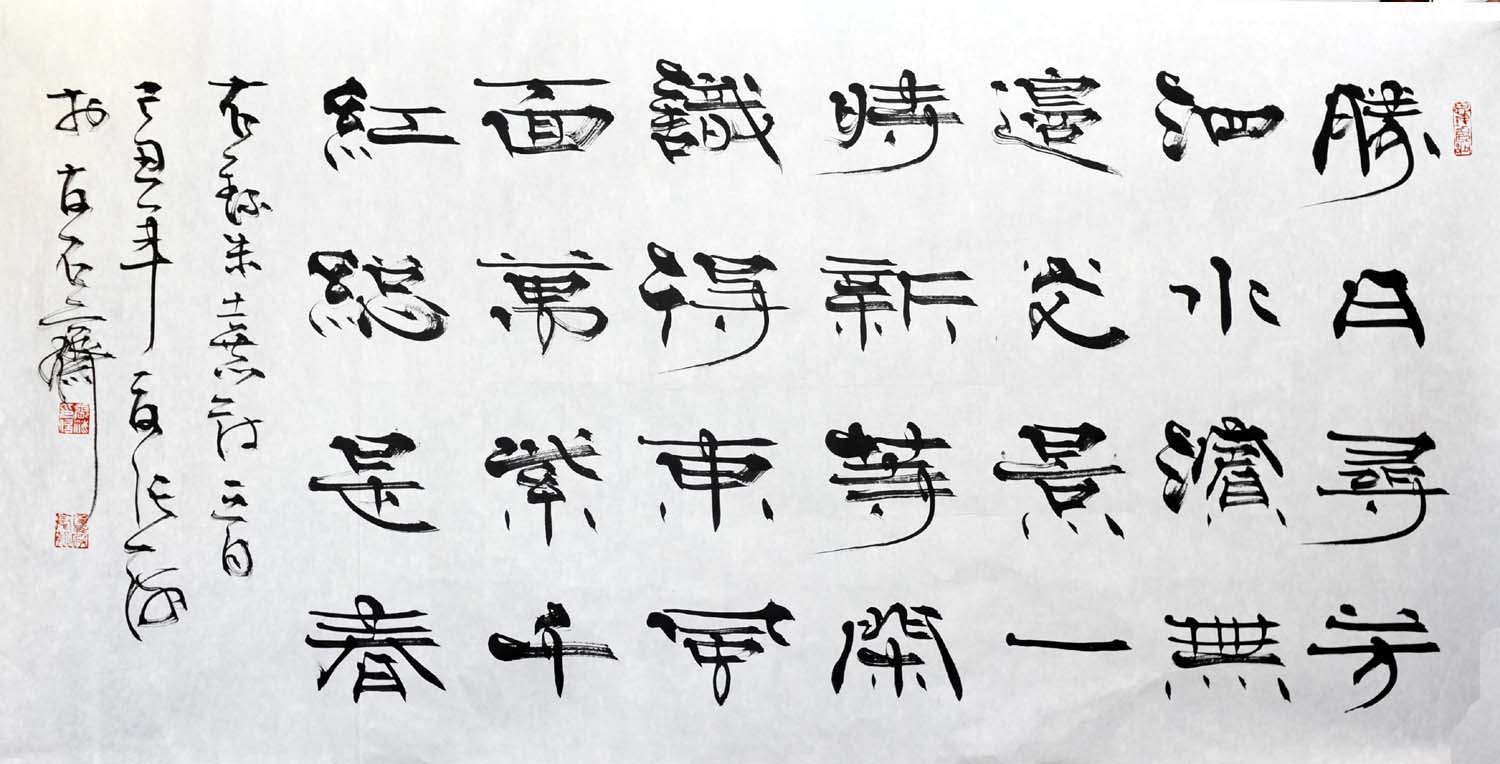 勝日尋芳
泗水濱無
邊光景一
時新等閑
識得東風
面萬紫千
紅總是春
右錄朱熹詩
己丑年夏
於石齋